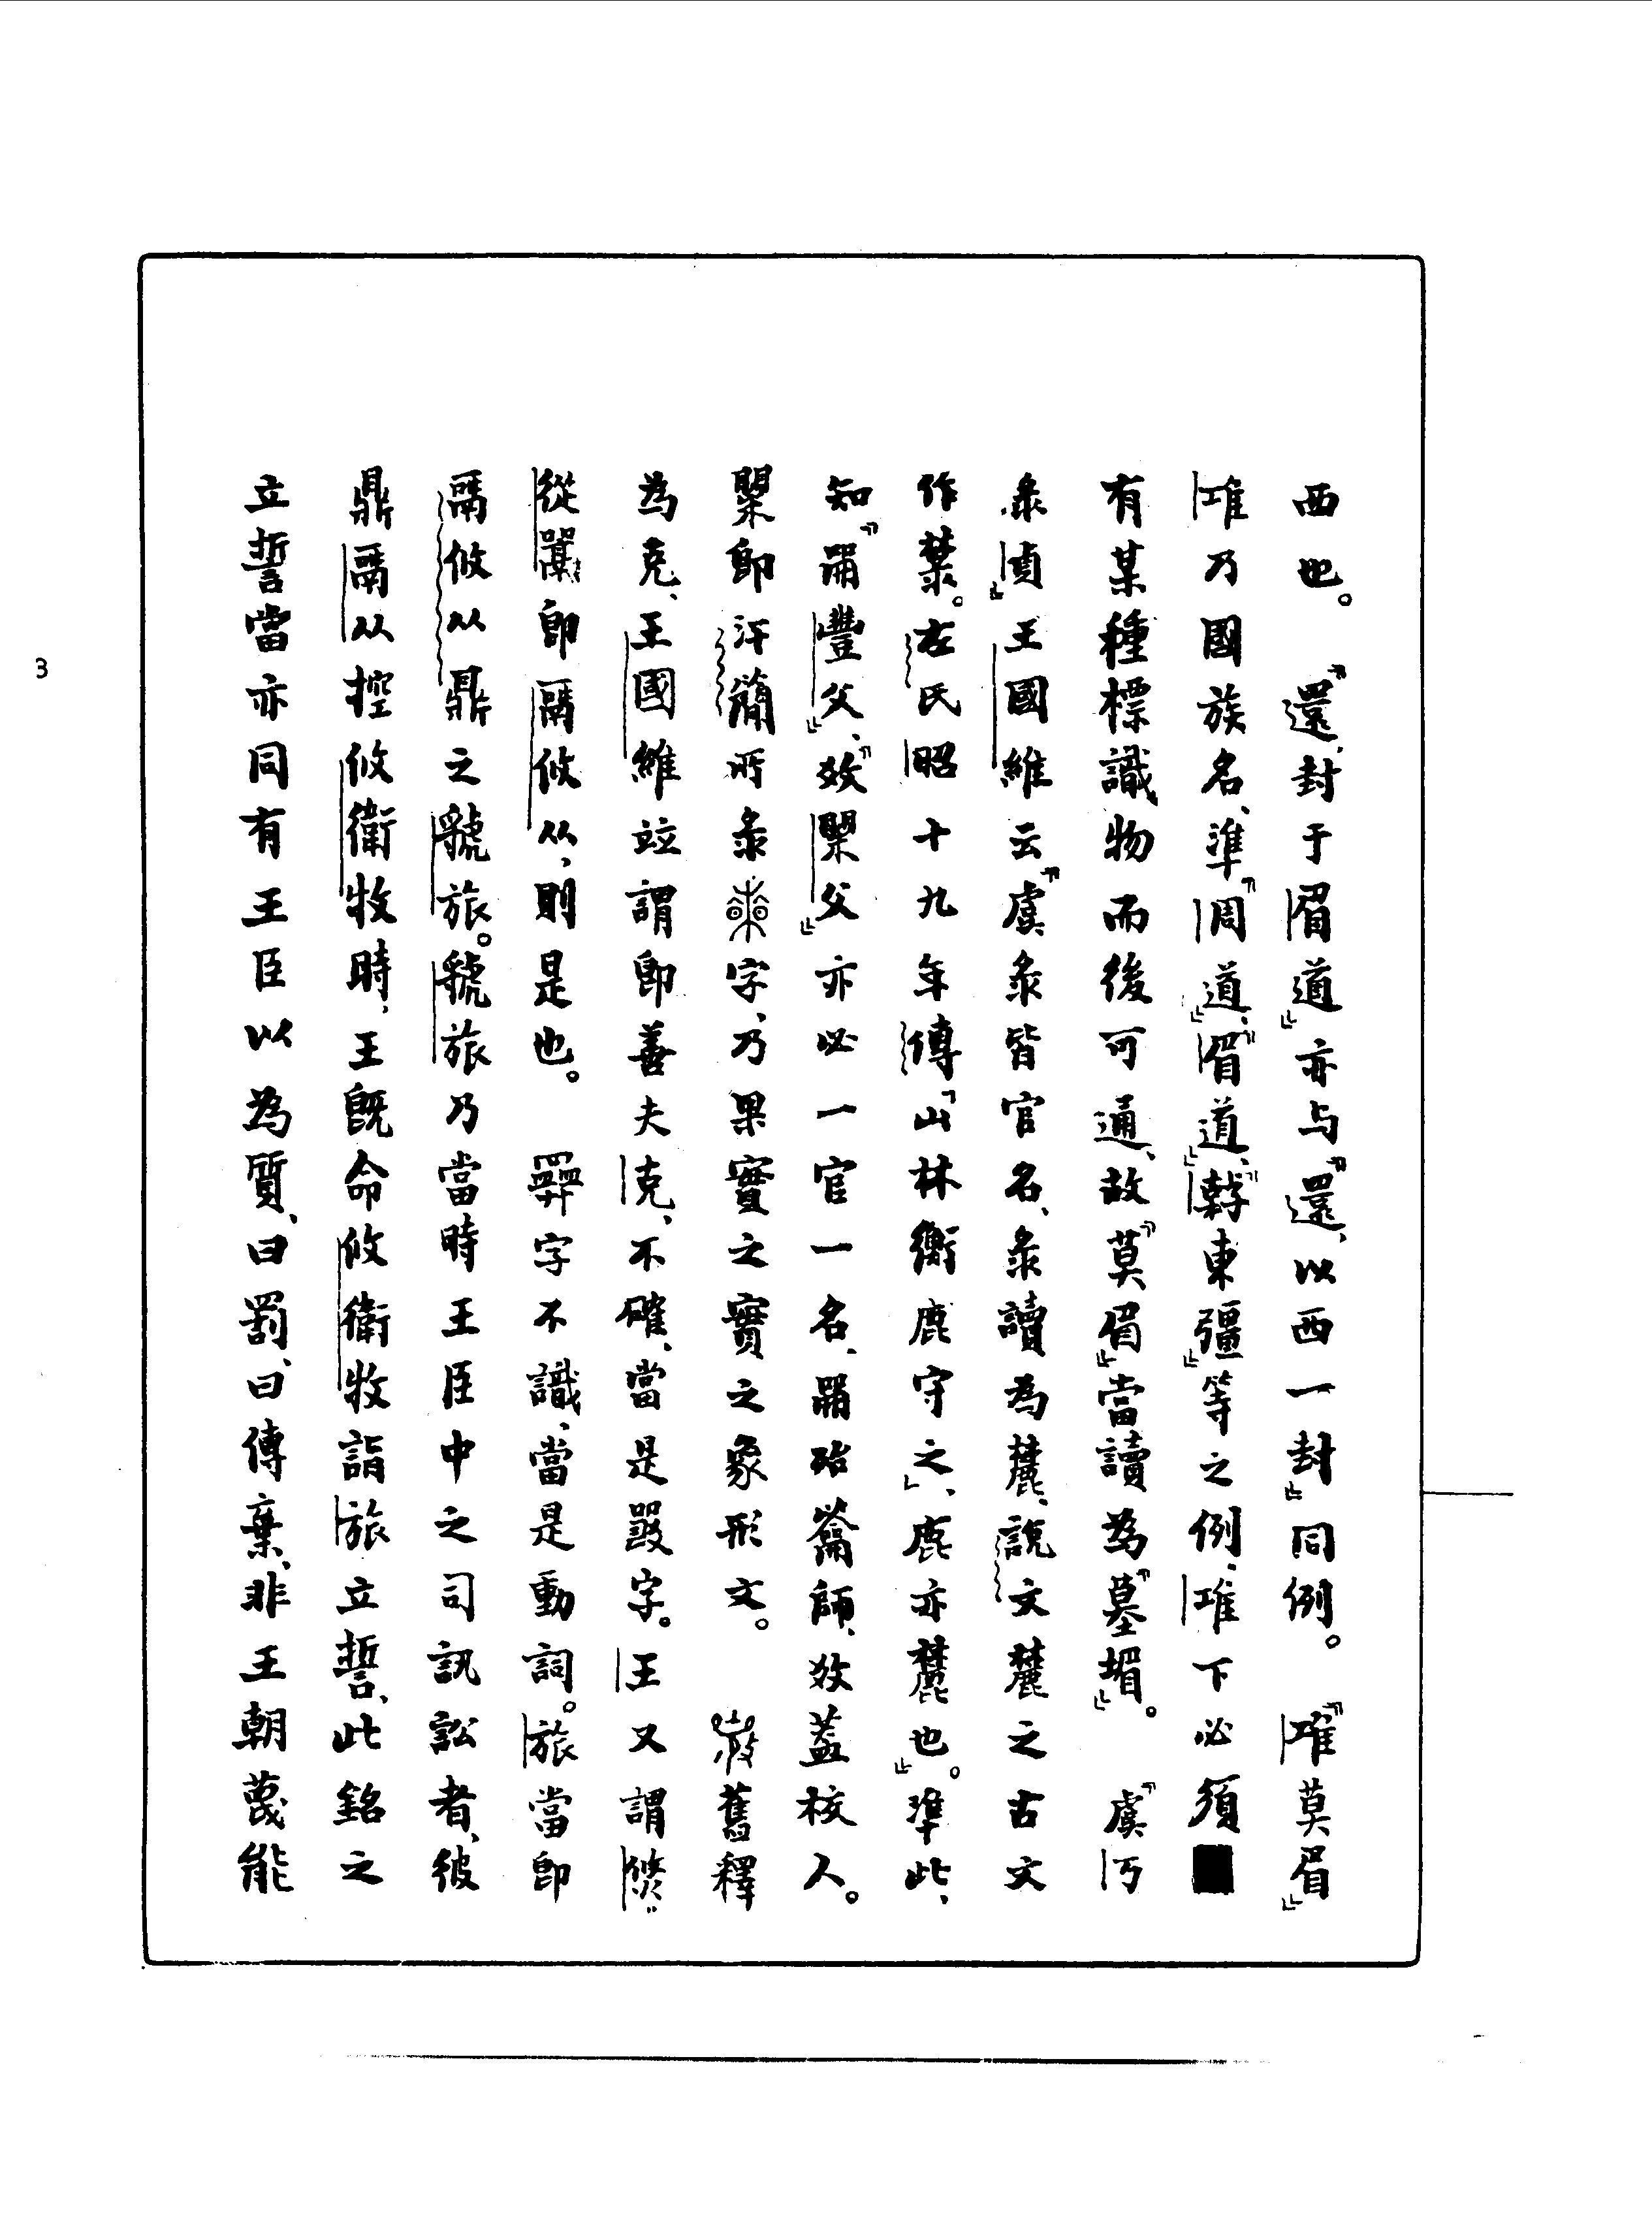 西也。『還，封于眉道』亦与『還，以西一封』同例。『𨾊莫眉』
𨾊乃國族名、準『周道』、『眉道』、『𢧢東彊』等之例，𨾊下必須
有某種標識物而後可通，故『莫眉』當讀為『墓堳』。『虞丂
彔貞』王國維云『虞彔皆官名、彔讀為麓、說文麓之古文
作禁。左氏昭十九年傳「山林衡鹿守之」、鹿亦麓也』。準此、
知『𠱠豐父』、『效㮚父』亦必一官一名、𠱠殆龠師、效蓋校人。
㮚即汗簡所彔字、乃果實之實之象形文。舊釋
為克、王國維竝謂即善夫克、不確、當是字。王又謂攸
從即鬲攸从，則是也。字不識、當是動詞。旅當即
鬲攸从鼎之虢旅。虢旅乃當時王臣中之司訊訟者、彼
鼎鬲从控攸衛牧時，王旣命攸衛牧詣旅立誓、此銘之
立誓當亦同有王臣以為質、曰罰、曰傳棄、非王朝蔑能
3